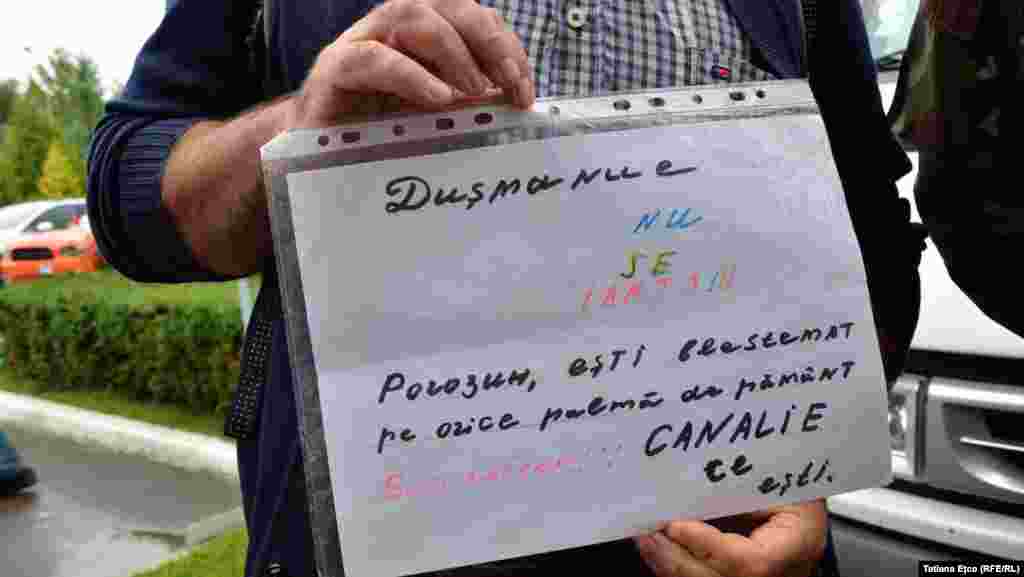 Dușmanue
NU
SE
IARTĂ!!!
Рогозин, ești blestemat
pe orice palmă de pământ
CANALIE
ce
ești.
Tatiana Ețco (RFE/RL)